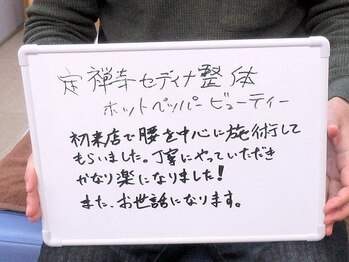 定禅寺セディナ整体
ホットペッパービューティー
初来店で腰を中心に施術して
もらいました。丁寧にやっていただき
かなり楽になりました!
また、お世話になります。